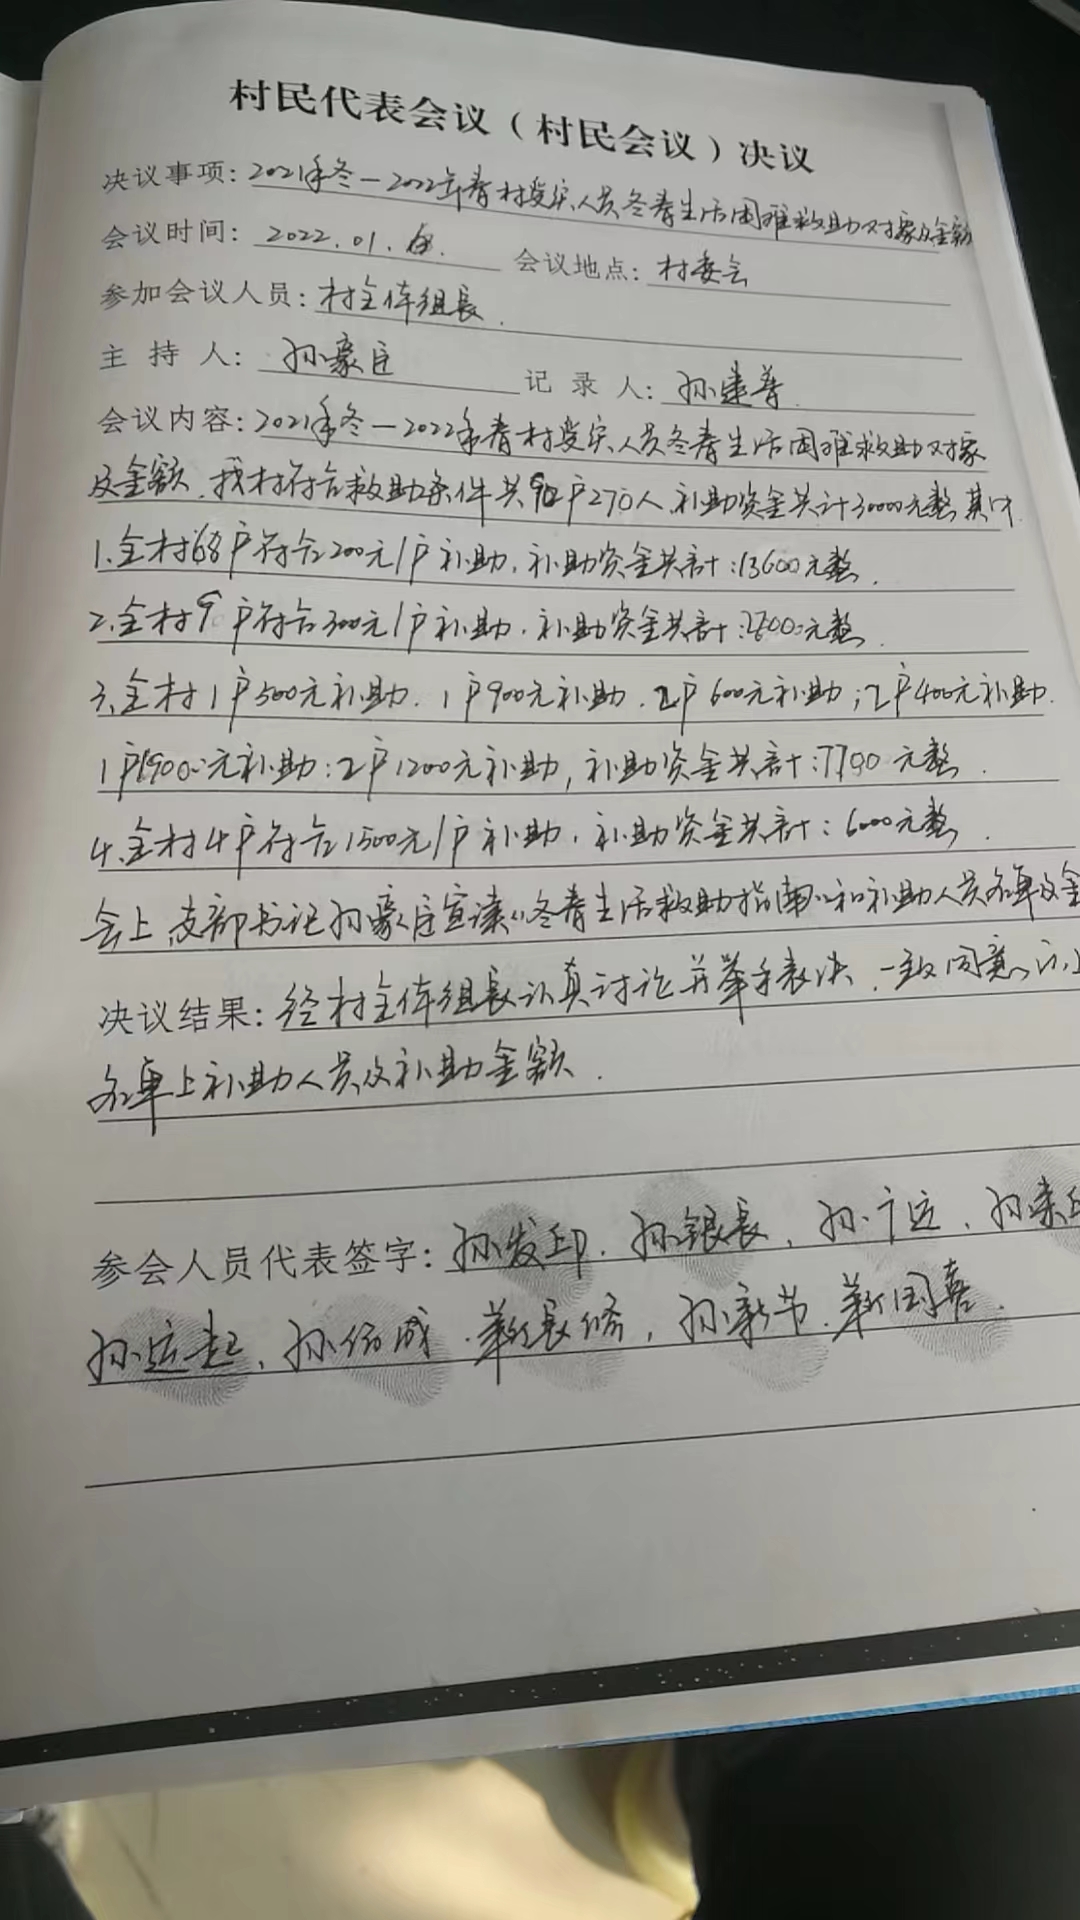 村民代表会议（村民会议）决议
决议事项：2021年冬—2022年春村受灾人员冬春生活困难救助对象及金额
会议时间：2022.01. 会议地点：村委会
参加会议人员：村全体组长.
主持人：孙豪臣 记录人：孙建
会议内容：2021年冬—2022年春村受灾人员冬春生活困难救助对象
及金额，我村符合救助条件共90户270人，补助资金共计30000元整 其中
1.全村68户符合200元/户补助，补助资金共計：13600元整.
2.全村9户符合300元/户补助，补助资金共計：2700元整.
3.全村1户500元补助. 1户900元补助. 2户600元补助；2户400元补助.
1户1900元补助：2户1200元补助，补助资金共計：7700元整.
4.全村4户符合1500元/户补助，补助资金共計：6000元整.
会上，支部书记孙豪臣宣读《冬春生活救助指南》和补助人员名单及金
决议结果：经村全体组长认真讨论并举手表决，一致同意以上
名单上补助人员及补助金额.
参会人员代表签字：孙发印、孙银長、孙广运、孙
孙运起、孙 成、靳長修，孙新节、靳国喜.